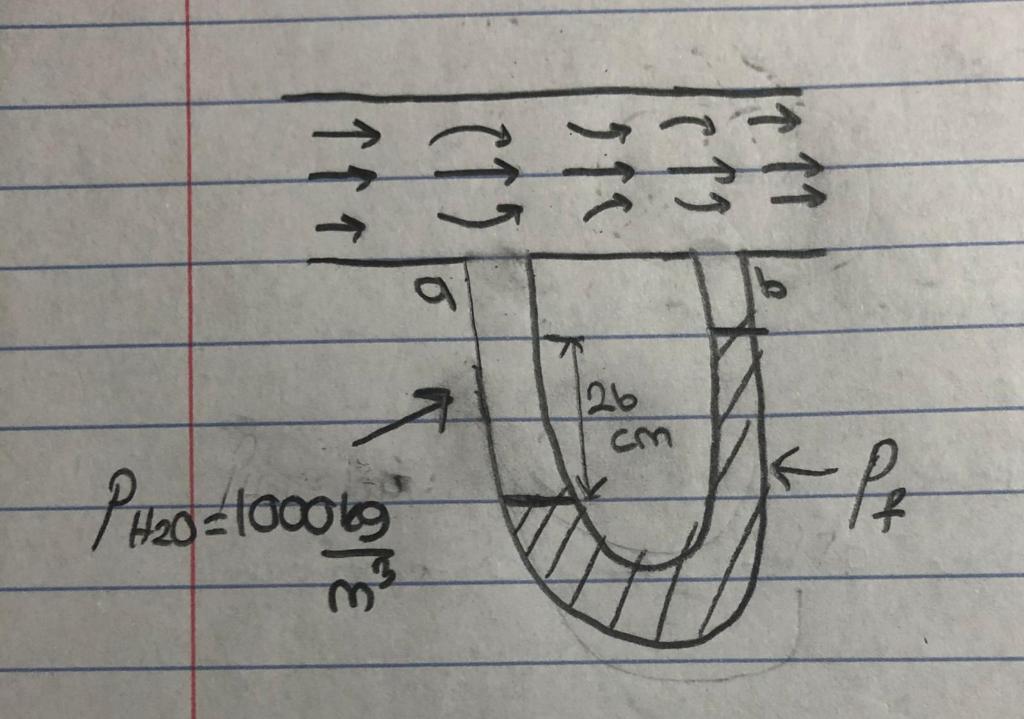 a
b
26
cm
ρH2O = 1000 kg
m³
ρf